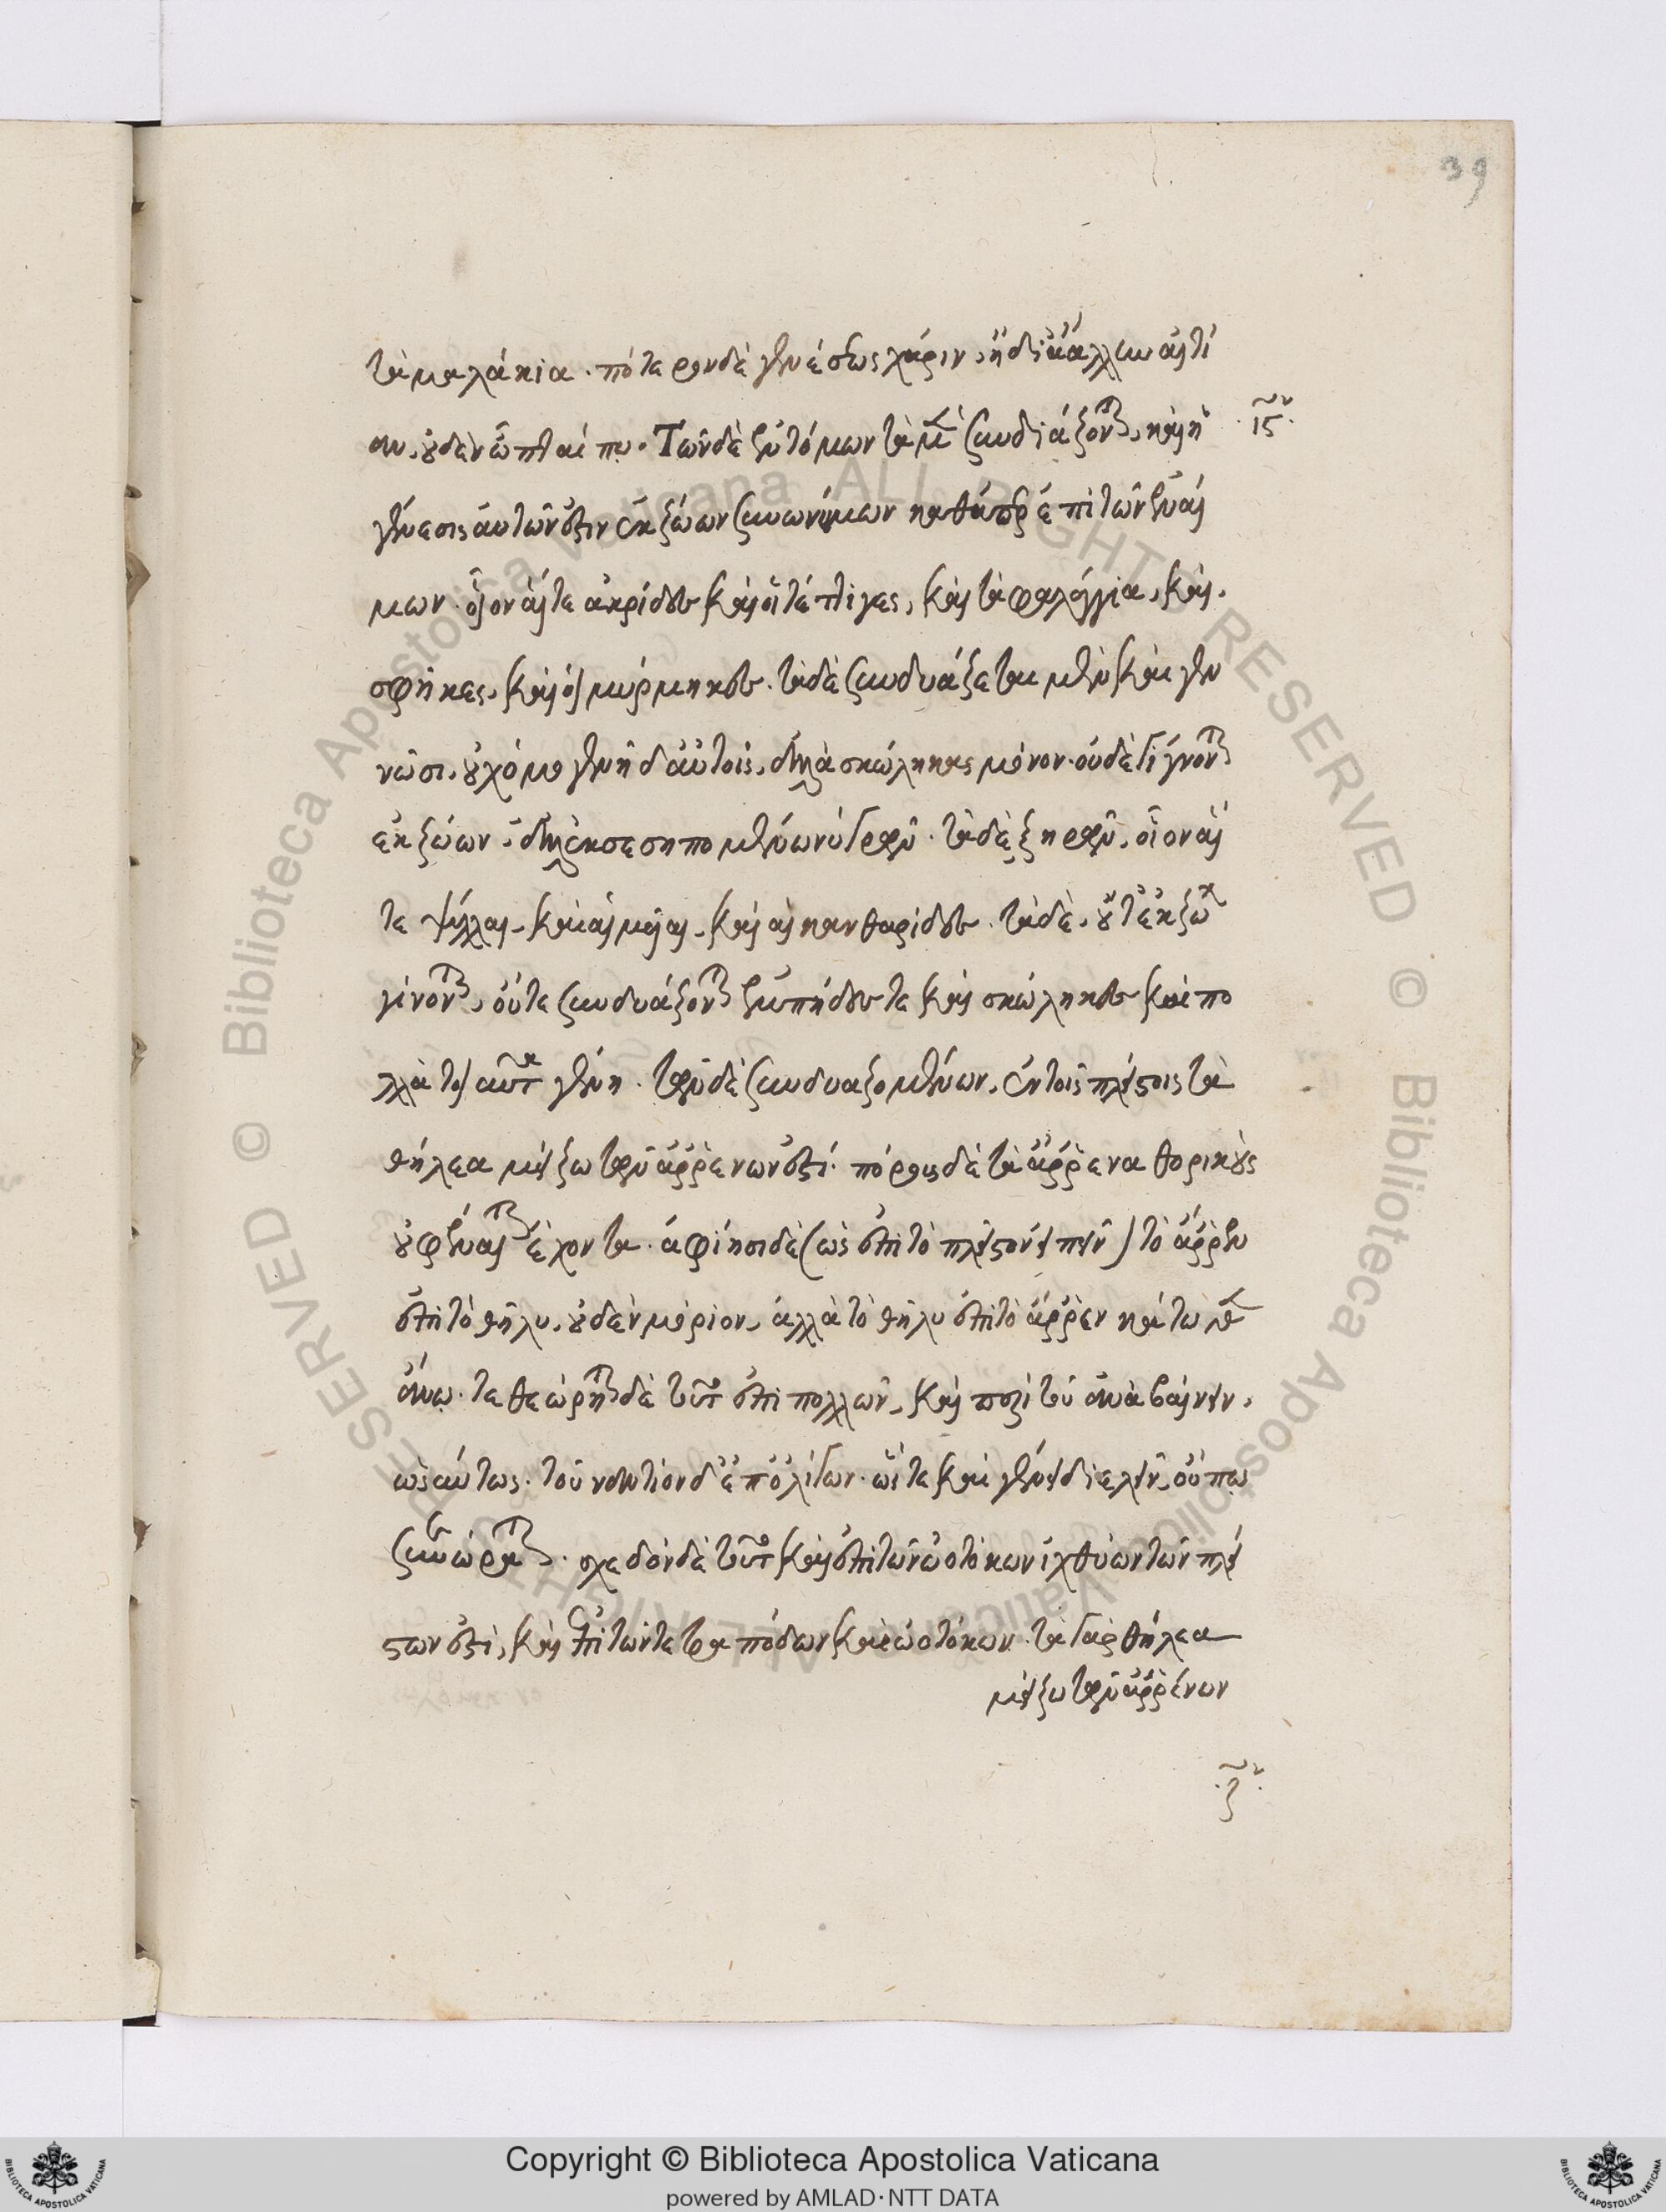 39
τὰ μαλάκια. πότερον δὲ γενέσεως χάριν, ἢ δι' ἄλλην αἰτί
αν, οὐδὲν ὦπταί πω. Τῶν δὲ ἐντόμων τὰ μὲν συνδιάζονται, καὶ ἡ
·ιϛ·
γένεσις αὐτῶν ἐστιν ἐκ ζώων συνωνύμων καθάπερ ἐπὶ τῶν ἐναί
μων. οἷον αἵ τε ἀκρίδες καὶ οἱ τέττιγες, καὶ τὰ φαλάγγια, καὶ
σφῆκες, καὶ οἱ μύρμηκες. τὰ δὲ συνδυάζεται μὲν καὶ γεν
νῶσι, οὐχ ὁμογενῆ δ' αὐτοῖς, ἀλλὰ σκώληκας μόνον. οὐδὲ γίγνονται
ἐκ ζώων. ἀλλ' ἐκ σεσηπομένων ὑγρῶν. τὰ δὲ ξηρῶν, οἷον αἵ
τε ψύλλαι, καὶ αἱ μυῖαι, καὶ αἱ κανθαρίδες. τὰ δὲ, οὔτ' ἐκ ζώων
γίνονται, οὔτε συνδυάζονται ἐμπίδες τε καὶ σκώληκες καὶ πο
λλὰ τοιαῦτα γένη. τῶν δὲ συνδυαζομένων, ἐν τοῖς πλείστοις τὰ
θήλεα μείζω τῶν ἀῤῥένων ἐστί. πόρους δὲ τὰ ἄῤῥενα θορικοὺς
οὐ φαίνεται ἔχοντα. ἀφίησι δὲ (ὡς ἐπὶ τὸ πλεῖστον εἰπεῖν) τὸ ἄῤῥεν
ἐπὶ τὸ θῆλυ, οὐδὲν μόριον, ἀλλὰ τὸ θῆλυ ἐπὶ τὸ ἄῤῥεν κάτωθεν
ἄνω. τεθεώρηται δὲ τοῦτο ἐπὶ πολλῶν, καὶ περὶ τοῦ ἀναβαίνειν,
ὡσαύτως. τοὐναντίον δ' ἐπ' ὀλίγων. ὥστε καὶ γένει διελεῖν, οὔπω
συνεώραται. σχεδὸν δὲ τοῦτο καὶ ἐπὶ τῶν ὠοτόκων ἰχθύων τῶν πλεί
στων ἐστὶ, καὶ ἐπὶ τῶν τετραπόδων καὶ ὠοτόκων. τὰ γὰρ θήλεα
μείζω τῶν ἀῤῥένων